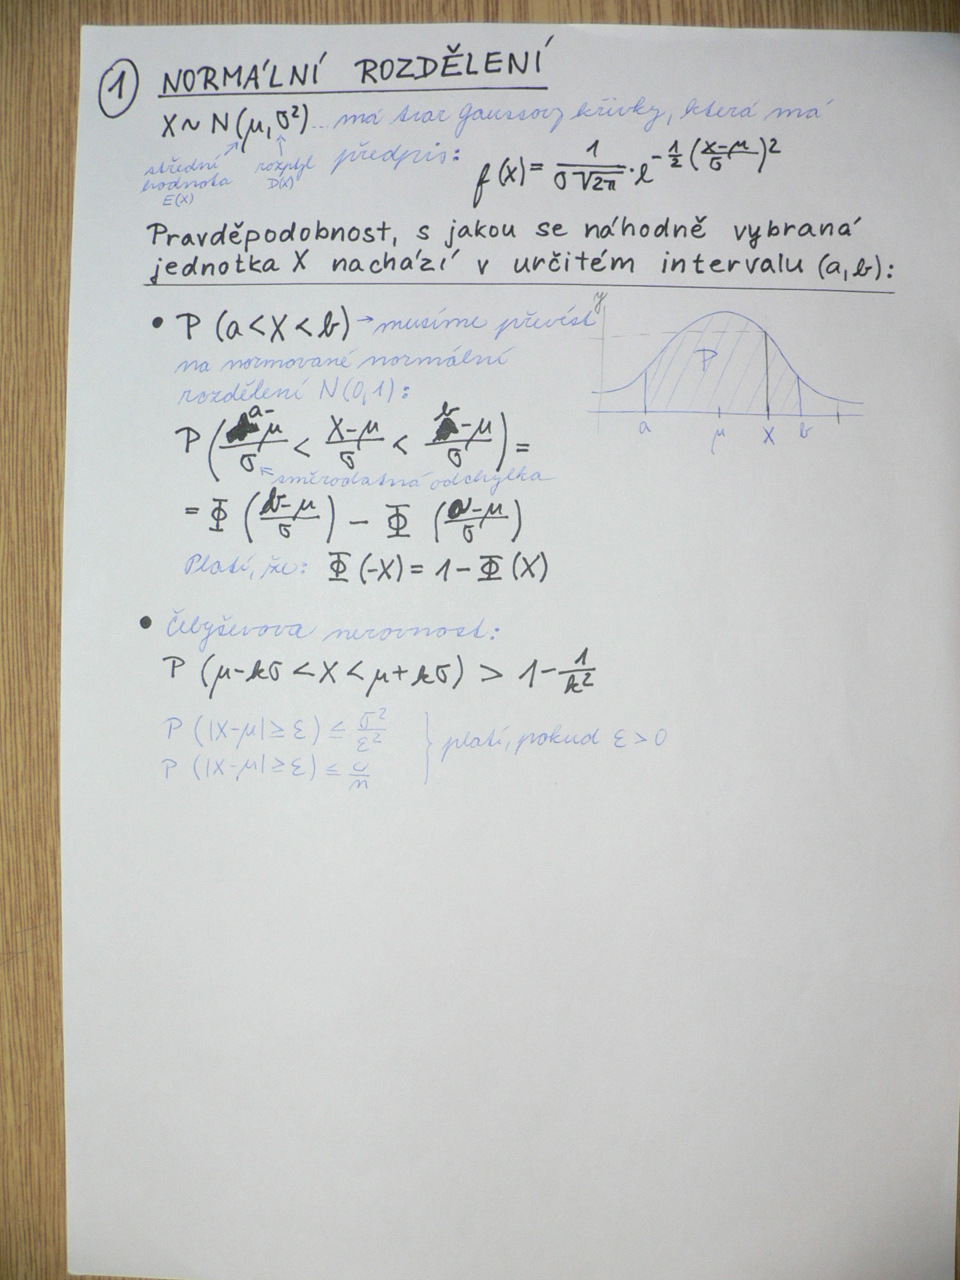 1 NORMÁLNÍ ROZDĚLENÍ
X ~ N(μ, σ²) ... má tvar Gaussovy křivky, která má
střední hodnota E(X)
rozptyl D(X)
předpis: f(x) = 1/(σ√2π) · e^(-1/2 ((x-μ)/σ)²)
Pravděpodobnost, s jakou se náhodně vybraná
jednotka X nachází v určitém intervalu (a, b):
• P (a < X < b) → musíme převést
na normované normální
rozdělení N(0,1):
y
P
a μ X b
P ((a-μ)/σ < (X-μ)/σ < (b-μ)/σ) =
směrodatná odchylka
= Φ ((b-μ)/σ) - Φ ((a-μ)/σ)
Platí, že: Φ (-X) = 1 - Φ (X)
• Čebyševova nerovnost:
P (μ-kσ < X < μ+kσ) > 1 - 1/k²
P (|X-μ| ≥ ε) ≤ σ²/ε²
P (|X-μ| ≥ ε) ≤
} platí, pokud ε > 0